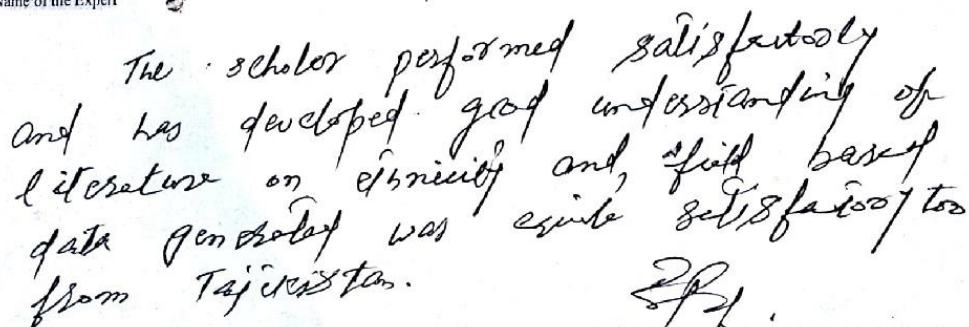 Name of the Expert
The scholar performed satisfactorly
and has developed good understanding of
literature on ethnicity and, field based
data generated was quite satisfactory too
from Tajikistan.